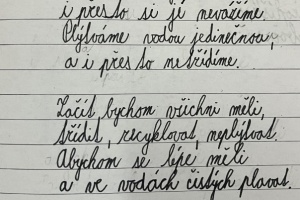 i přesto si jé nevážíme.
Plýtváme vodou jedinečnou,
a i přes to netřídíme.
Začít bychom všichni měli,
třídit, recyklovat, neplýtvat.
Abychom se lépe měli
a ve vodách čistých plavat.